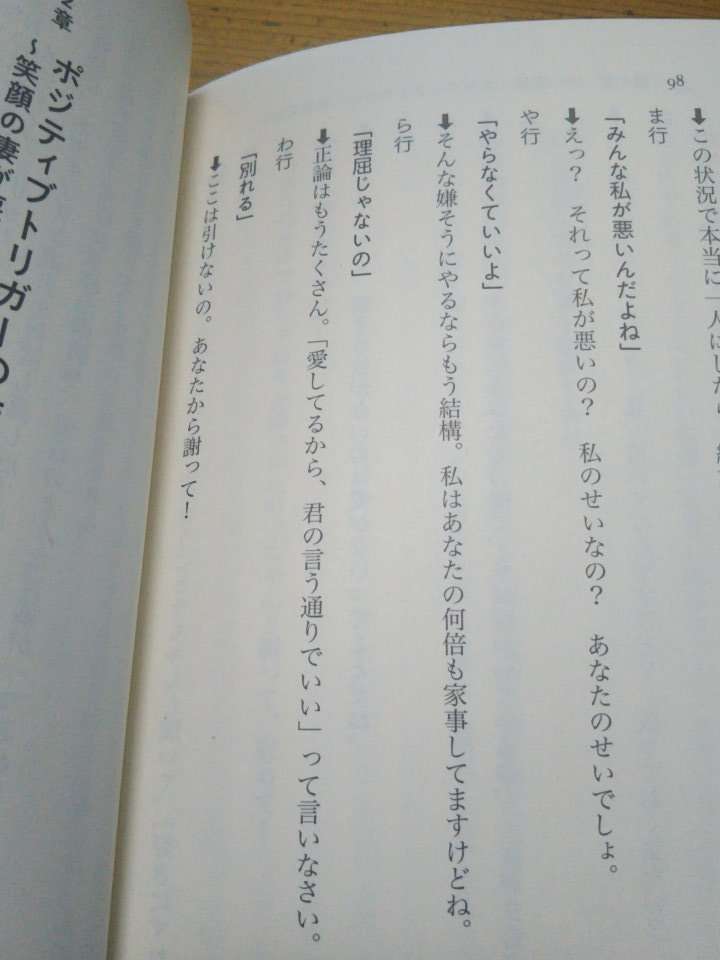 98
➡この状況で本当に一人にしたら
ま行
「みんな私が悪いんだよね」
➡えっ？　それって私が悪いの？　私のせいなの？　あなたのせいでしょ。
や行
「やらなくていいよ」
➡そんな嫌そうにやるならもう結構。私はあなたの何倍も家事してますけどね。
ら行
「理屈じゃないの」
➡正論はもうたくさん。「愛してるから、君の言う通りでいい」って言いなさい。
わ行
「別れる」
➡ここは引けないの。あなたから謝って！
章　ポジティブトリガーの
～笑顔の妻が